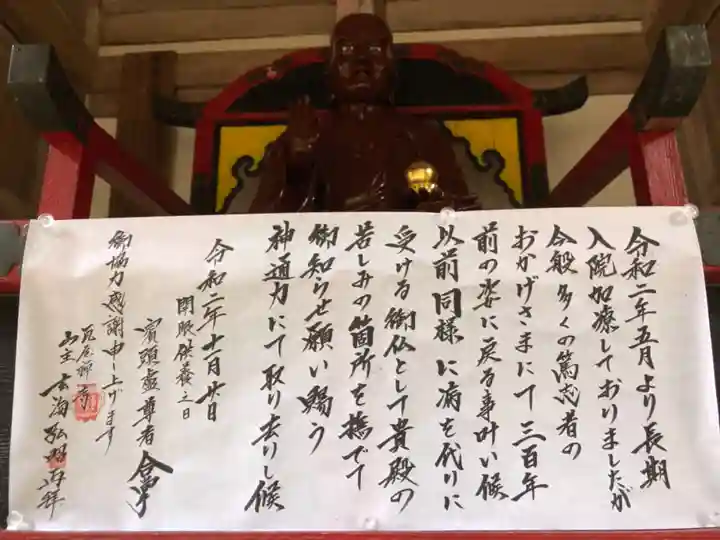 令和二年五月より長期
入院加療しておりましたが
今般多くの篤志者の
おかげさまにて三百年
前の姿に戻る事叶い候
以前同様に病を代りに
受ける御仏として貴殿の
苦しみの箇所を撫でて
御知らせ願い賜う
神通力にて取り去りし候
令和二年十一月廿日
開眼供養之日
賓頭盧尊者 合掌
御協力感謝申し上げます
山主 玄海弘明 再拝